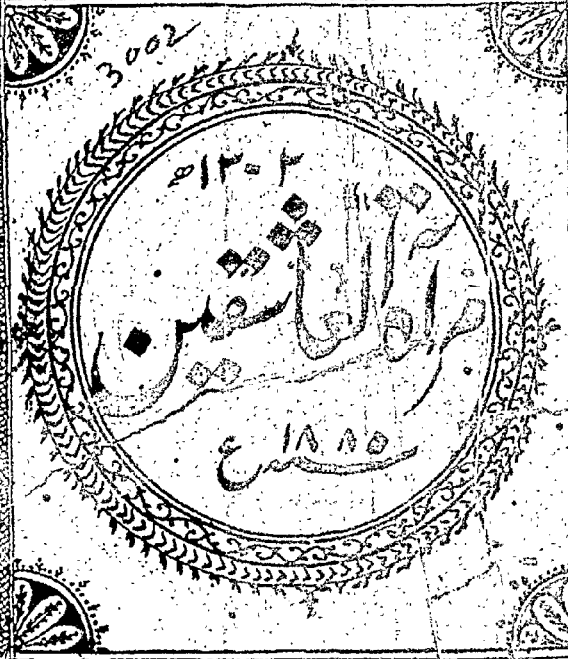 3002
۱۳۰۲ھ
مرآة العاشقين
۱۸۸۵ء